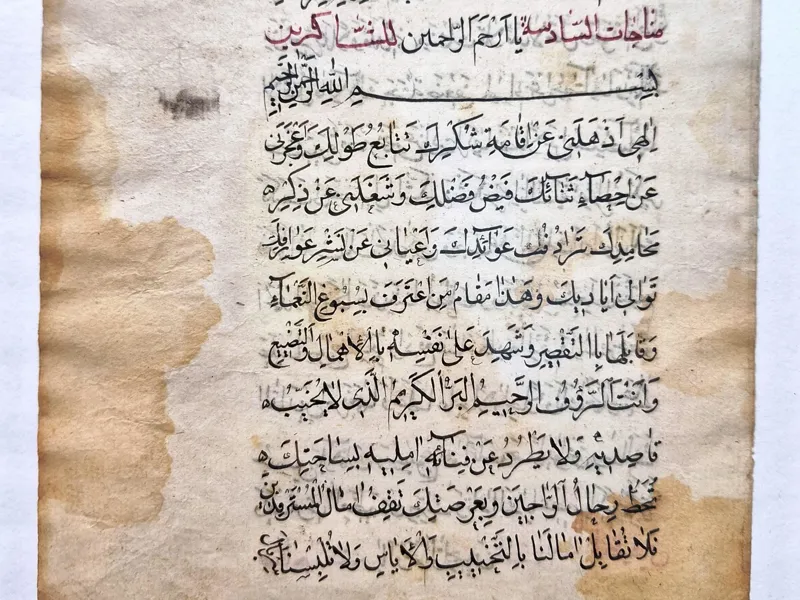 مناجات السّادسة يا ارحم الرّاحمين للشّاكرين
بسم الله الرّحمن الرّحيم
اِلٰهى اَذْهَلَنى عَنْ اِقامَةِ شُكْرِكَ تَتابُعُ طَوْلِكَ وَاَعْجَزَنى
عَنْ اِحْصآءِ ثَنائِكَ فَيْضُ فَضْلِكَ وَشَغَلَنى عَنْ ذِكْرِ
مَحامِدِكَ تَرادُفُ عَوائِدِكَ وَاَعْيانى عَنْ نَشْرِ عَوارِفِكَ
تَوالى اَيادِيكَ وَهٰذا مَقامُ مَنِ اعْتَرَفَ بِسُبُوغِ النَّعْمآءِ
وَقابَلَها بِالتَّقْصِيرِ وَشَهِدَ عَلىٰ نَفْسِهِ بِاالاِهْمالِ وَالتَّضْيِيعِ
وَاَنْتَ الرَّؤُفُ الرَّحِيمُ البَرُّ الكَرِيمُ الَّذى لا يُخَيِّبُ
قاصِدِيهِ وَلا يَطْرُدُ عَنْ فِنآئِهِ امِلِيهِ بِساحَتِكَ
تَحُطُّ رِحالُ الرّاجِينَ وَبِعَرْصَتِكَ تَقِفُ امالُ المُسْتَرْفِدِينَ
فَلا تُقابِلْ امالَنا بِالتَّخْيِيبِ وَالْاِياسِ وَلا تُلْبِسْنا